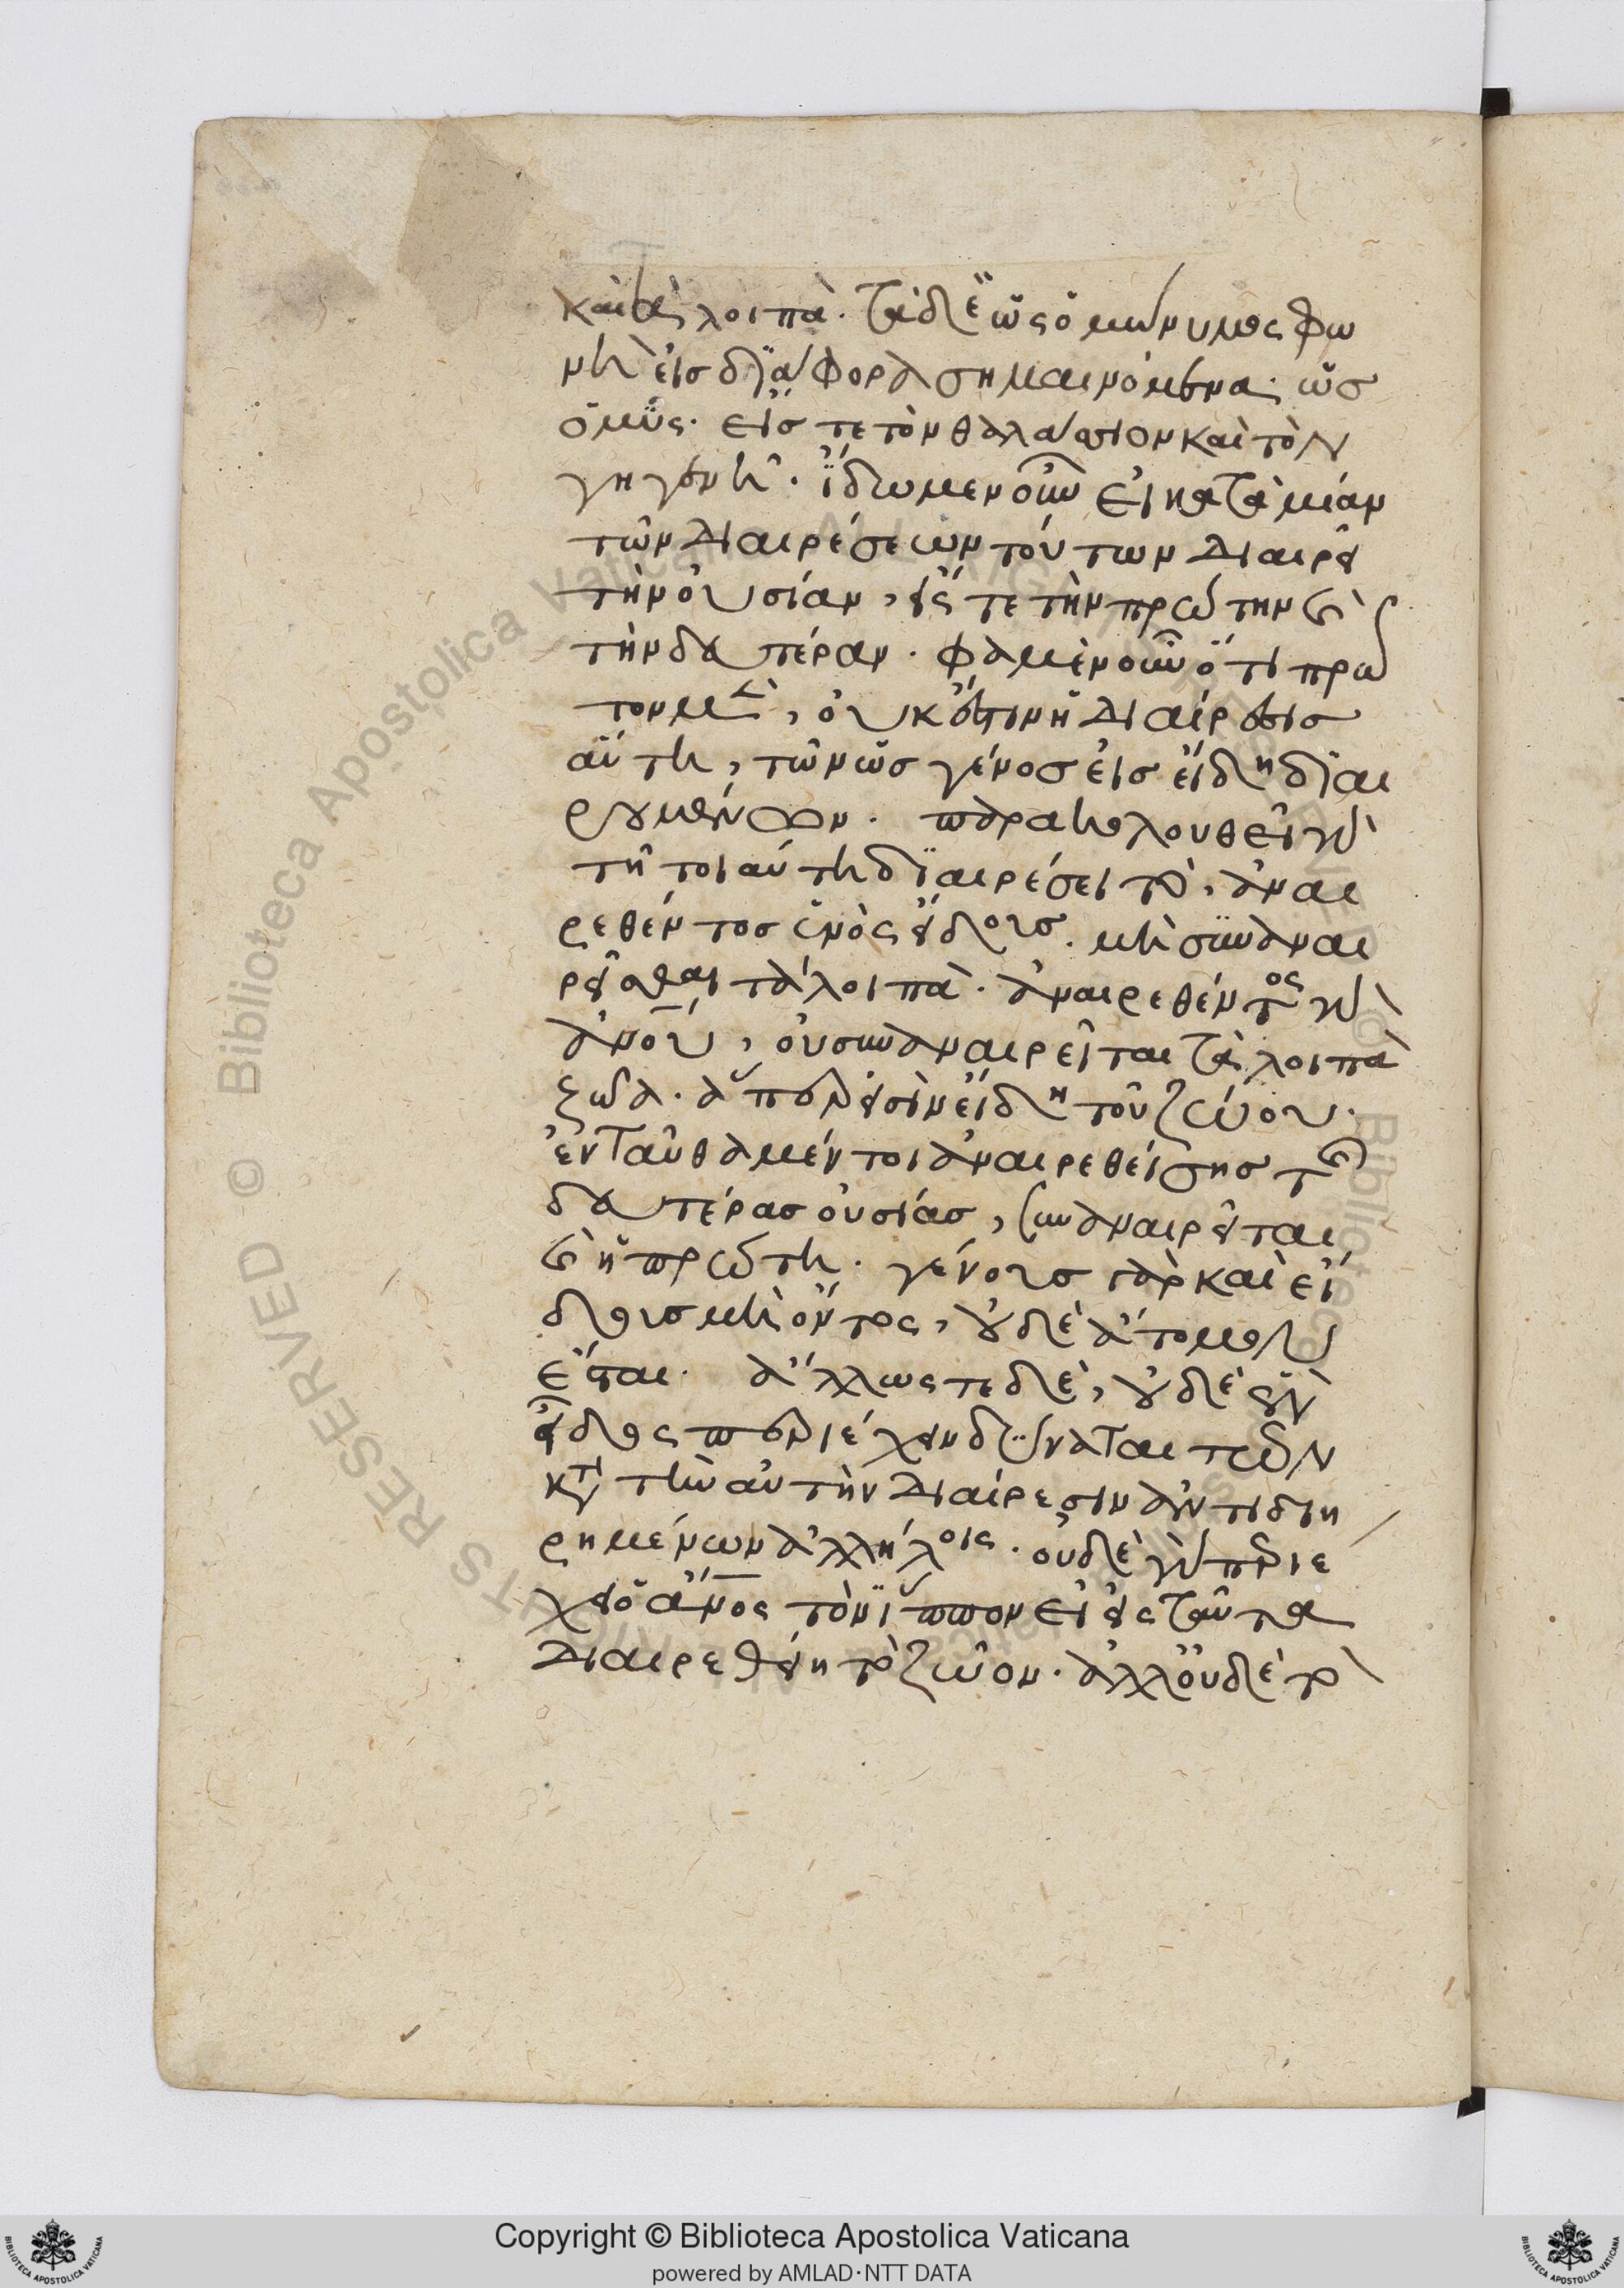 καὶ τὰ λοιπά. τὰ δὲ ὡς ὁμώνυμος φω
νὴ εἰς διάφορα σημαινόμενα· ὡς
ὁ μῦς. εἴς τε τὸν θαλάσσιον καὶ τὸν
γηγενῆ. ἴδωμεν οὖν εἰ κατὰ μίαν
τῶν διαιρέσεων τούτων διαιρεῖ
τὴν οὐσίαν, εἴς τε τὴν πρώτην καὶ
τὴν δευτέραν. φαμὲν οὖν ὅτι πρῶ
τον μὲν, οὐκ ἔστιν ἡ διαίρεσις
αὕτη, τῶν ὡς γένος εἰς εἴδη διαι
ρουμένων. παρακολουθεῖ γὰρ
τῇ τοιαύτη διαιρέσει τὸ, ἀναι
ρεθέντος ἑνὸς εἴδους. μὴ συναναι
ρεῖσθαι τὰ λοιπά. ἀναιρεθέντος γὰρ
ἀνου, οὐ συναναιρεῖται τὰ λοιπὰ
ζῶα. ἅπερ εἰσὶν εἴδη τοῦ ζώου.
ἐνταῦθα μέντοι ἀναιρεθείσης τῆς
δευτέρας οὐσίας, συναναιρεῖται
καὶ ἡ πρώτη. γένους γὰρ καὶ εἴ
δους μὴ ὄντος, οὐδὲ ἄτομον
ἔσται. ἄλλως τε δὲ, οὐδὲ ἓν
εἶδος περιέχειν δύναται τῶν
κατὰ τὴν αὐτὴν διαίρεσιν ἀντιδιη
ρημένων ἀλλήλοις. οὐδὲ γὰρ περιέ
χει ὁ ἄνος τὸν ἵππον εἰ εἰς ταῦτα
διαιρεθείη τὸ ζῶον. ἀλλ' οὐδὲ τὸ
Copyright © Biblioteca Apostolica Vaticana
powered by AMLAD·NTT DATA